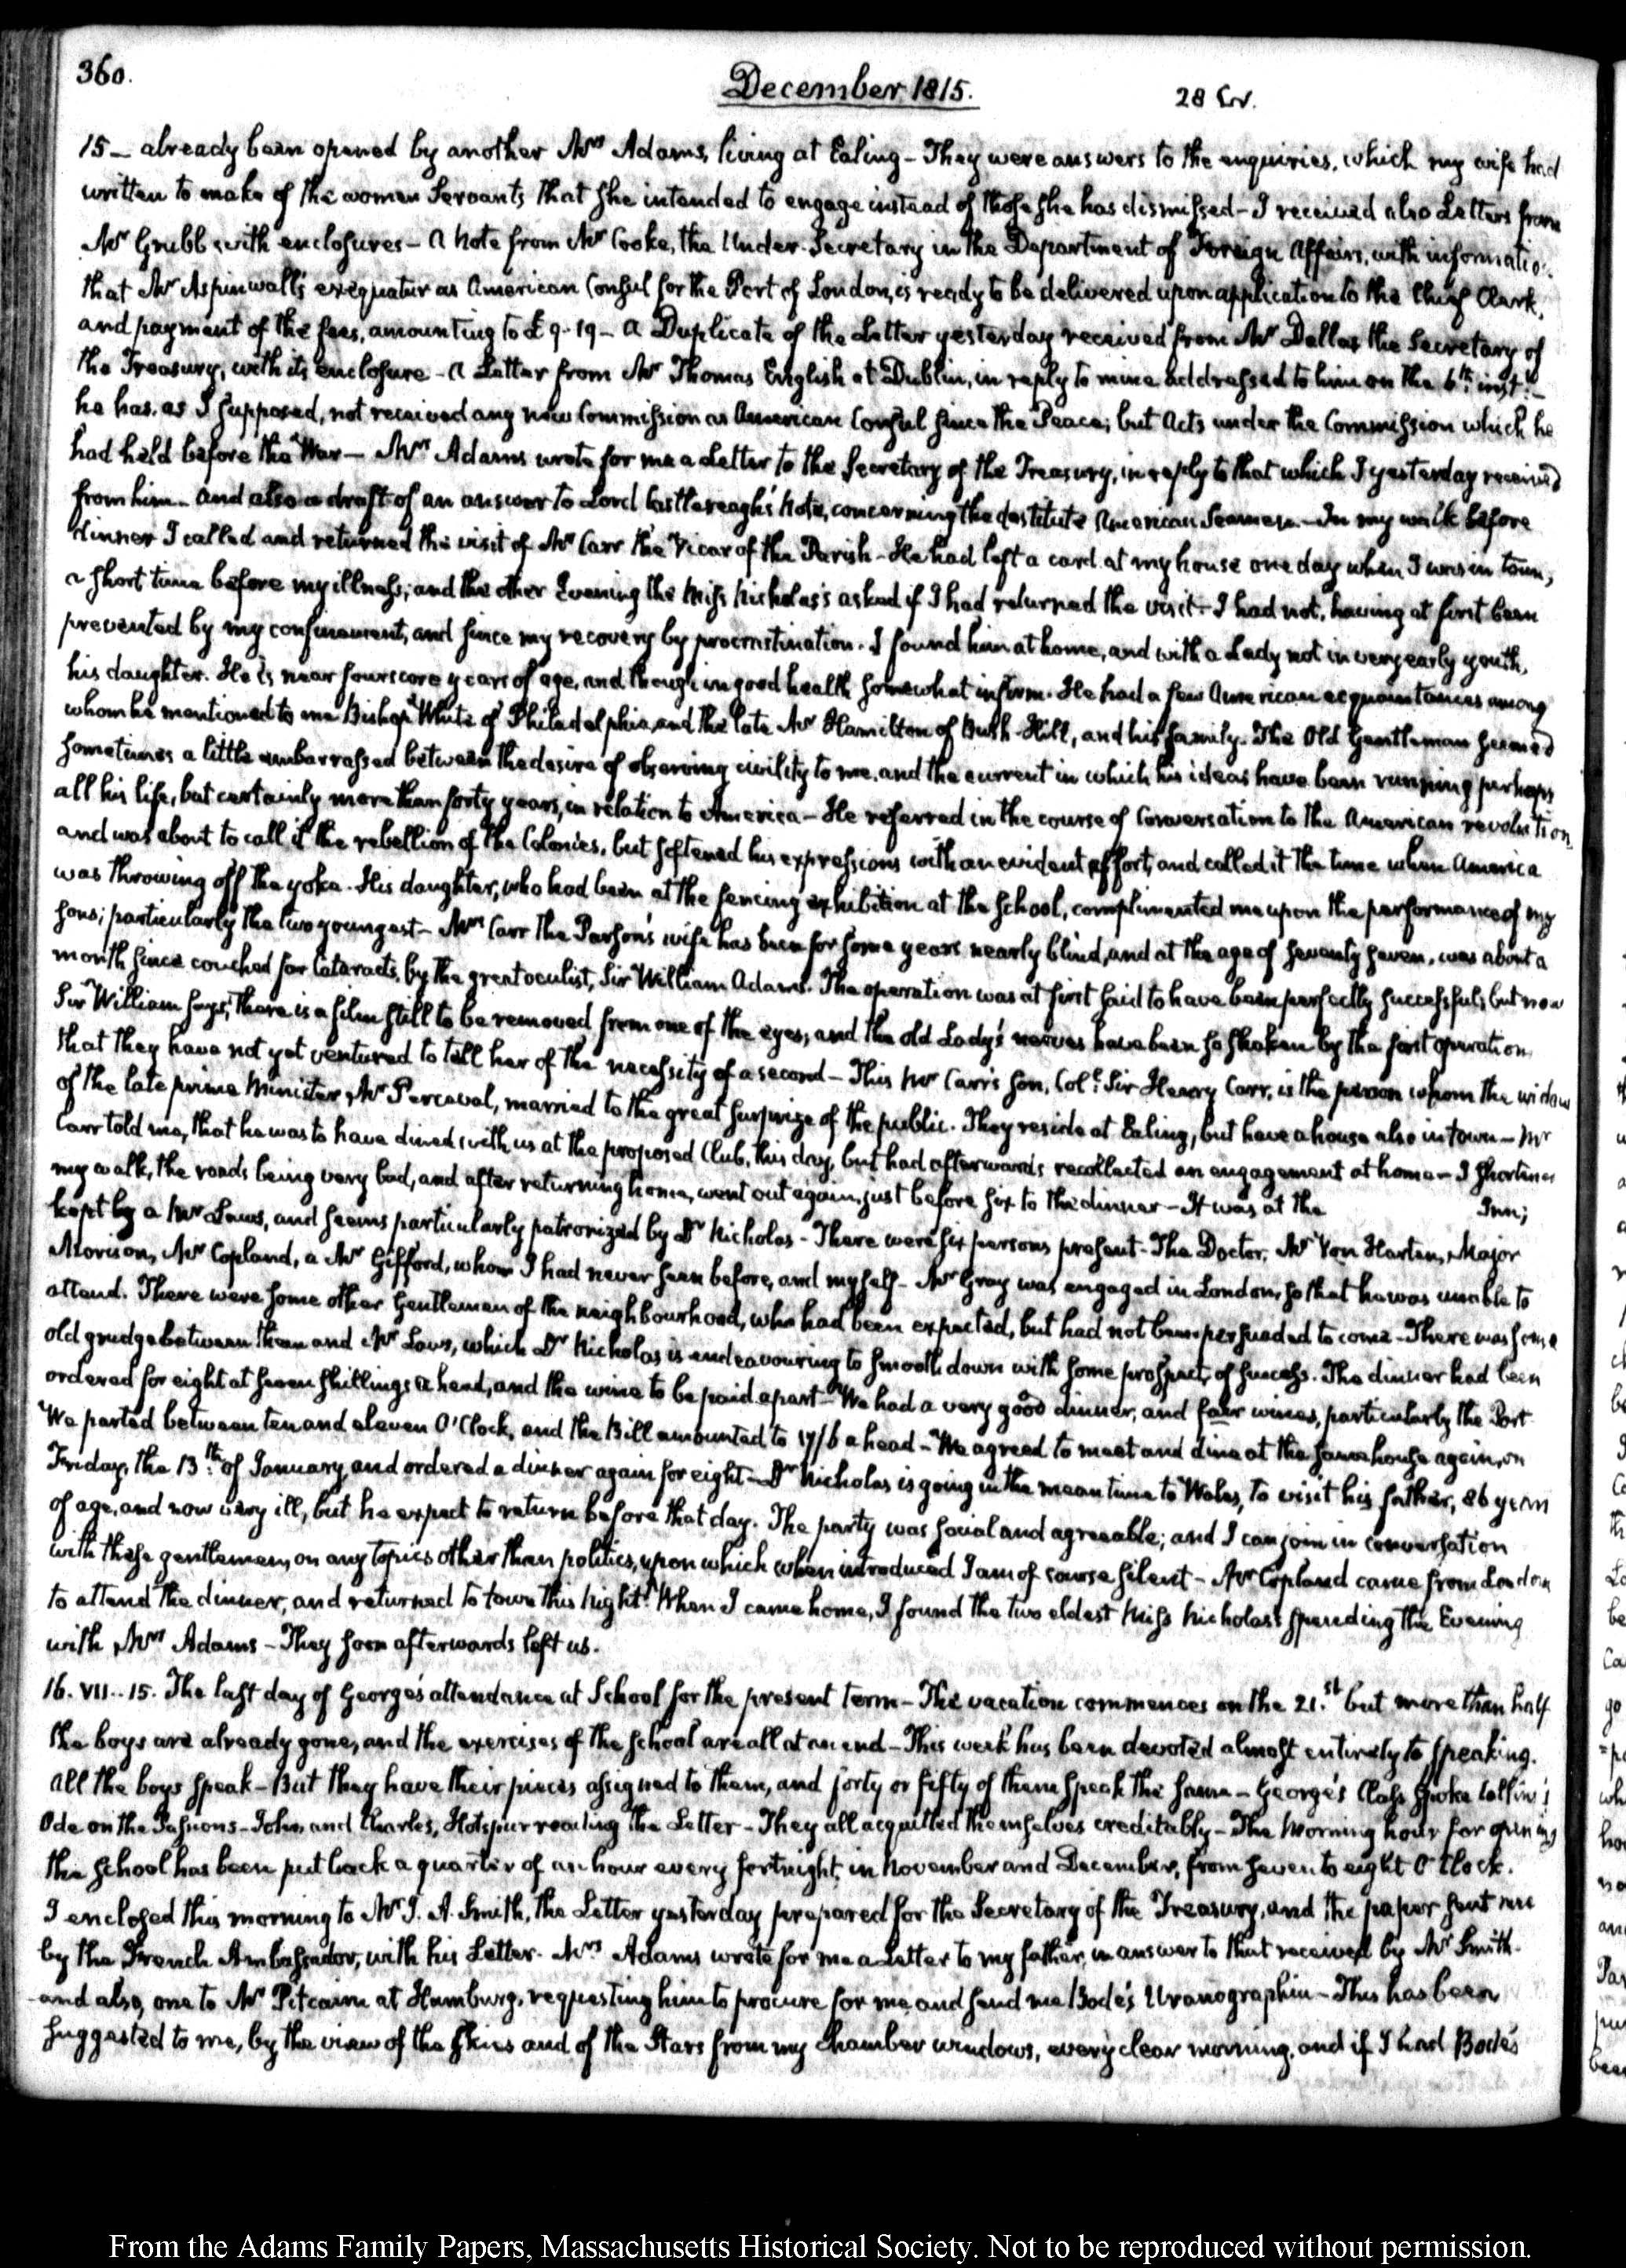 360.
December 1815.
28
15 — already been opened by another Mrs Adams, living at Ealing — They were answers to the enquiries, which my wife had
written to make of the women Servants that she intended to engage instead of those she has dismissed — I received also Letters from
Mr Grubb with enclosures — A Note from Mr Cooke, the Under-Secretary in the Department of Foreign Affairs, with information
that Mr Aspinwall's exequatur as American Consul for the Port of London, is ready to be delivered upon application to the Chief Clerk,
and payment of the fees, amounting to £9-19 — A Duplicate of the Letter yesterday received from Mr Dallas the Secretary of
the Treasury, with its enclosure — A Letter from Mr Thomas English at Dublin, in reply to mine addressed to him on the 6th inst: —
he has, as I supposed, not received any new Commission as American Consul since the Peace; but Acts under the Commission which he
had held before the War — Mrs Adams wrote for me a Letter to the Secretary of the Treasury, in reply to that which I yesterday received
from him — and also a draft of an answer to Lord Castlereagh's Note, concerning the destitute American Seamen. — In my walk before
dinner I called and returned the visit of Mr Carr the Vicar of the Parish — He had left a card at my house one day when I was in town,
a short time before my illness; and the other Evening the Miss Nicholas's asked if I had returned the visit — I had not, having at first been
prevented by my confinement, and since my recovery by procrastination. I found him at home, and with a Lady not in very early youth,
his daughter. He is near fourscore years of age, and though in good health somewhat infirm. He had a few American acquaintances among
whom he mentioned to me Bishop White of Philadelphia, and the late Mr Hamilton of Bush-Hill, and his family. The Old Gentleman seemed
sometimes a little embarrassed between the desire of observing civility to me, and the current in which his ideas have been running perhaps
all his life, but certainly more than forty years, in relation to America — He referred in the course of Conversation to the American revolution
and was about to call it the rebellion of the Colonies, but softened his expressions with an evident effort, and called it the time when America
was throwing off the yoke. His daughter, who had been at the fencing exhibition at the School, complimented me upon the performance of my
Sons; particularly the two youngest — Mrs Carr the Parson's wife has been for some years nearly blind, and at the age of seventy seven, was about a
month since couched for Cataracts, by the great oculist, Sir William Adams. The operation was at first said to have been perfectly successful; but now
Sir William says, there is a film still to be removed from one of the eyes, and the old Lady's nerves have been so shaken by the first operation,
that they have not yet ventured to tell her of the necessity of a second — This Mr Carr's son, Col: Sir Henry Carr, is the person whom the widow
of the late prime Minister, Mr Perceval, married to the great surprize of the public. They reside at Ealing, but have a house also in town — Mr
Carr told me, that he was to have dined with us at the proposed Club, this day, but had afterwards recollected an engagement at home — I shortened
my walk, the roads being very bad, and after returning home, went out again just before six to the dinner — It was at the Inn;
kept by a Mr Laws, and seems particularly patronized by Dr Nicholas — There were six persons present — The Doctor, Mr Von Harten, Major
Morison, Mr Copland, a Mr Gifford, whom I had never seen before, and myself — Mr Gray was engaged in London, so that he was unable to
attend. There were some other Gentlemen of the neighbourhood, who had been expected, but had not been persuaded to come — There was some
old grudge between them and Mr Laws, which Dr Nicholas is endeavouring to smooth down with some prospect of success. The dinner had been
ordered for eight at seven shillings a head, and the wine to be paid apart — We had a very good dinner, and fair wines, particularly the Port
We parted between ten and eleven O'Clock, and the Bill amounted to 17/6 a head — We agreed to meet and dine at the same house again, on
Friday, the 13th of January, and ordered a dinner again for eight — Dr Nicholas is going in the mean time to Wales, to visit his father, 86 years
of age, and now very ill, but he expect to return before that day. The party was social and agreeable; and I can join in conversation
with these gentlemen, on any topics other than politics, upon which when introduced I am of course silent — Mr Copland came from London
to attend the dinner, and returned to town this Night. When I came home, I found the two eldest Miss Nicholas's spending the Evening
with Mrs Adams — They soon afterwards left us.
16. VII..15. The last day of George's attendance at School for the present term — The vacation commences on the 21.st but more than half
the boys are already gone, and the exercises of the school are all at an end — This week has been devoted almost entirely to speaking.
all the boys speak — But they have their pieces assigned to them, and forty or fifty of them speak the same — George's Class spoke Collins's
Ode on the Passions — John, and Charles, Hotspur reading the Letter — They all acquitted themselves creditably — The Morning hour for opening
the school has been put back a quarter of an hour every fortnight, in November and December, from seven to eight O'Clock.
I enclosed this morning to Mr J. A. Smith, the Letter yesterday prepared for the Secretary of the Treasury, and the paper sent me
by the French Ambassador, with his Letter. Mrs Adams wrote for me a Letter to my father, in answer to that received by Mr Smith —
and also, one to Mr Pitcairn at Hamburg, requesting him to procure for me and send me Bode's Uranographia — This has been
suggested to me, by the view of the skies and of the Stars from my chamber windows, every clear morning, and if I had Bode's
From the Adams Family Papers, Massachusetts Historical Society. Not to be reproduced without permission.